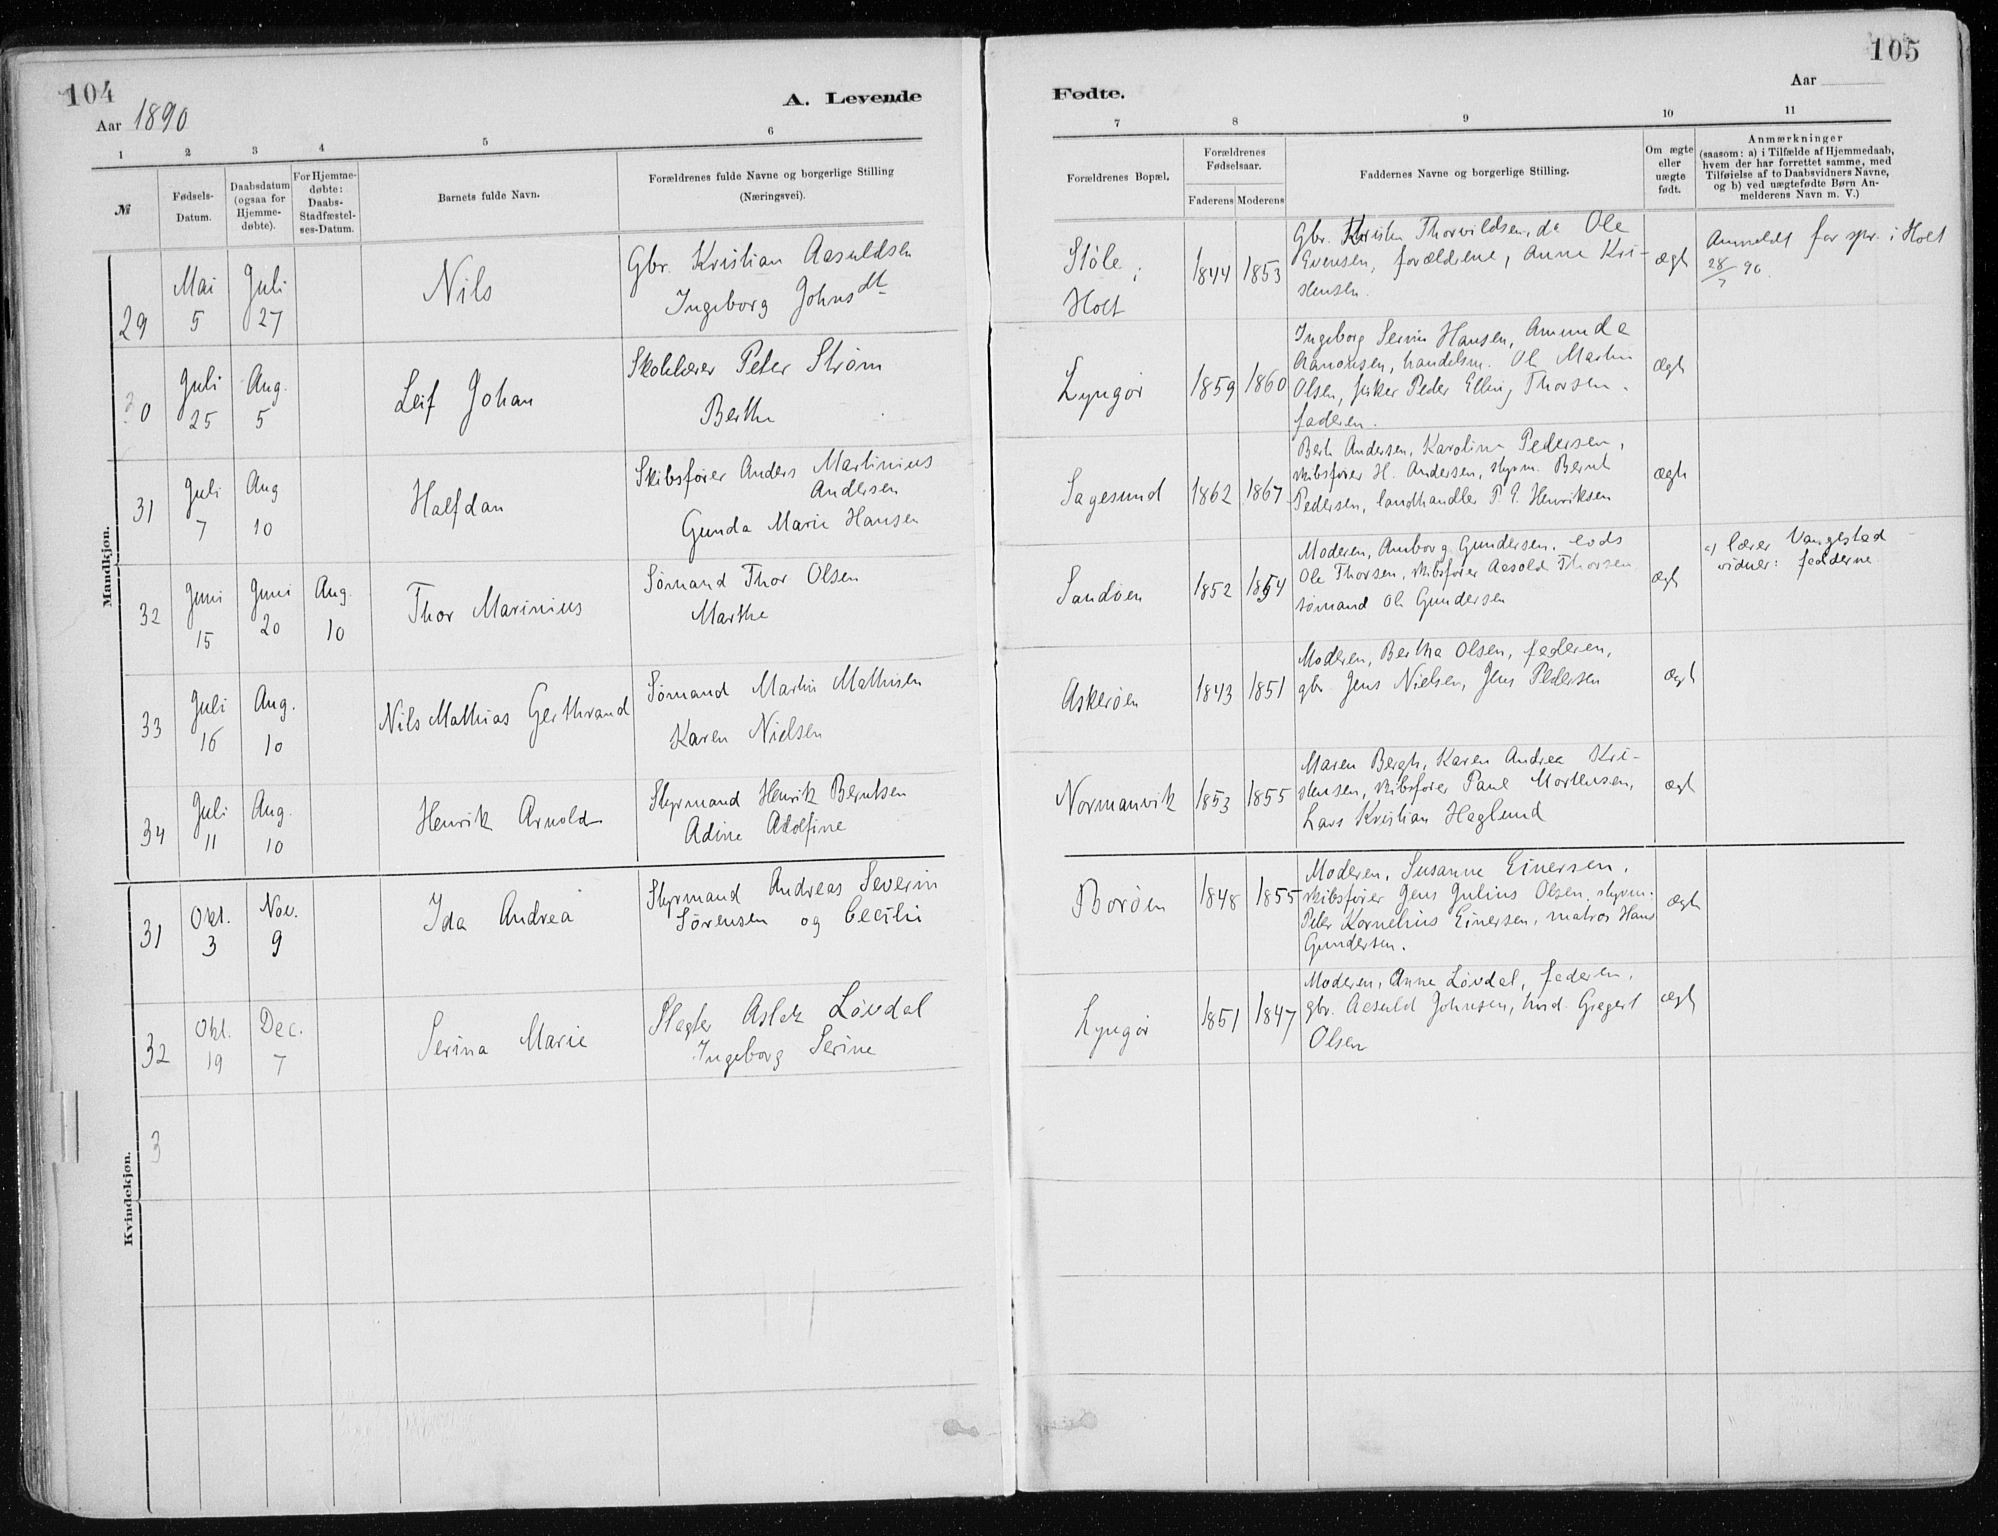 104
Aar 1890
A. Levende
1
2
3
4
5
6
№
Fødsels-
Datum.
Daabsdatum
(ogsaa for
Hjemme-
døbte).
For Hjemme-
døbte:
Daabs-
Stadfæstel-
ses-Datum.
Barnets fulde Navn.
Forældrenes fulde Navne og borgerlige Stilling
(Næringsvei).
Mandkjøn.
29
Mai
5
Juli
27
Nils
Gbr. Kristian Aasuldsen
Ingeborg Johnsdt
30
Juli
25
Aug.
5
Leif Johan
Skolelærer Peter Strøm
Berthe
31
Juli
7
Aug
10
Halfdan
Skibsfører Anders Martinius
Andersen
Gunda Marie Hansen
32
Juni
15
Juni
20
Aug.
10
Thor Marinius
Sømand Thor Olsen
Marthe
33
Juli
16
Aug.
10
Nils Mathias Gerthrand
Sømand Martin Mathisen
Karen Nielsen
34
Juli
11
Aug.
10
Henrik Arnold
Styrmand Henrik Berntsen
Adine Adolfine
Kvindekjøn.
31
Okt.
3
Nov.
9
Ida Andrea
Styrmand Andreas Severin
Sørensen og Cecilie
32
Okt.
19
Dec.
7
Serina Marie
Slagter Aslak Løvdal
Ingeborg Serine
3
105
Fødte.
Aar
7
8
9
10
11
Forældrenes Bopæl.
Forældrenes
Fødselsaar.
Faderens
Moderens
Faddernes Navne og borgerlige Stilling.
Om ægte
eller
uægte
født.
Anmærkninger
(saasom: a) i Tilfælde af Hjemmedaab,
hvem der har forrettet samme, med
Tilføielse af to Daabsvidners Navne,
og b) ved uægtefødte Børn An-
melderens Navn m. V.)
Støle i
Holt
1844
1853
Gbr. Kristen Thorvildsen, do Ole
Evensen, forældrene, Anne Kri-
stensen.
ægt
Anmeldt for spr. i Holt
28/7 90.
Lyngør
1859
1860
Ingeborg Serine Hansen, Amunda
Aanonsen, handelsm. Ole Martin
Olsen, fisker Peder Elling Thorsen.
faderen.
ægt
Sagesund
1862
1867
Berte Andersen, Karoline Pedersen,
skibsfører H. Andersen, styrm. Bernt
Pedersen, landhandler P. E. Henriksen
ægte
Sandøen
1852
1854
Moderen, Amborg Gundersen, lods
Ole Thorsen, skibsfører Aasold Thorsen
sømand Ole Gundersen
ægt
a) lærer Vangestad
vidner: fadderne
Askerøen
1843
1851
Moderen, Bertha Olsen, faderen,
gbr. Jens Nielsen, Jens Pedersen
ægt
Normanvik
1853
1855
Maren Bergh, Karen Andrea Kri-
stensen, skibsfører Paul Mortensen,
Lars Kristian Haglund
ægt
Borøen
1848
1855
Moderen, Susanne Einersen,
skibsfører Jens Julius Olsen, styrm.
Peter Kornelius Einersen, matros Hans
Gundersen.
ægt
Lyngør
1851
1847
Moderen, Anne Løvdal, faderen,
gbr. Aasuld Johnsen, hmd. Gregert
Olsen
ægt